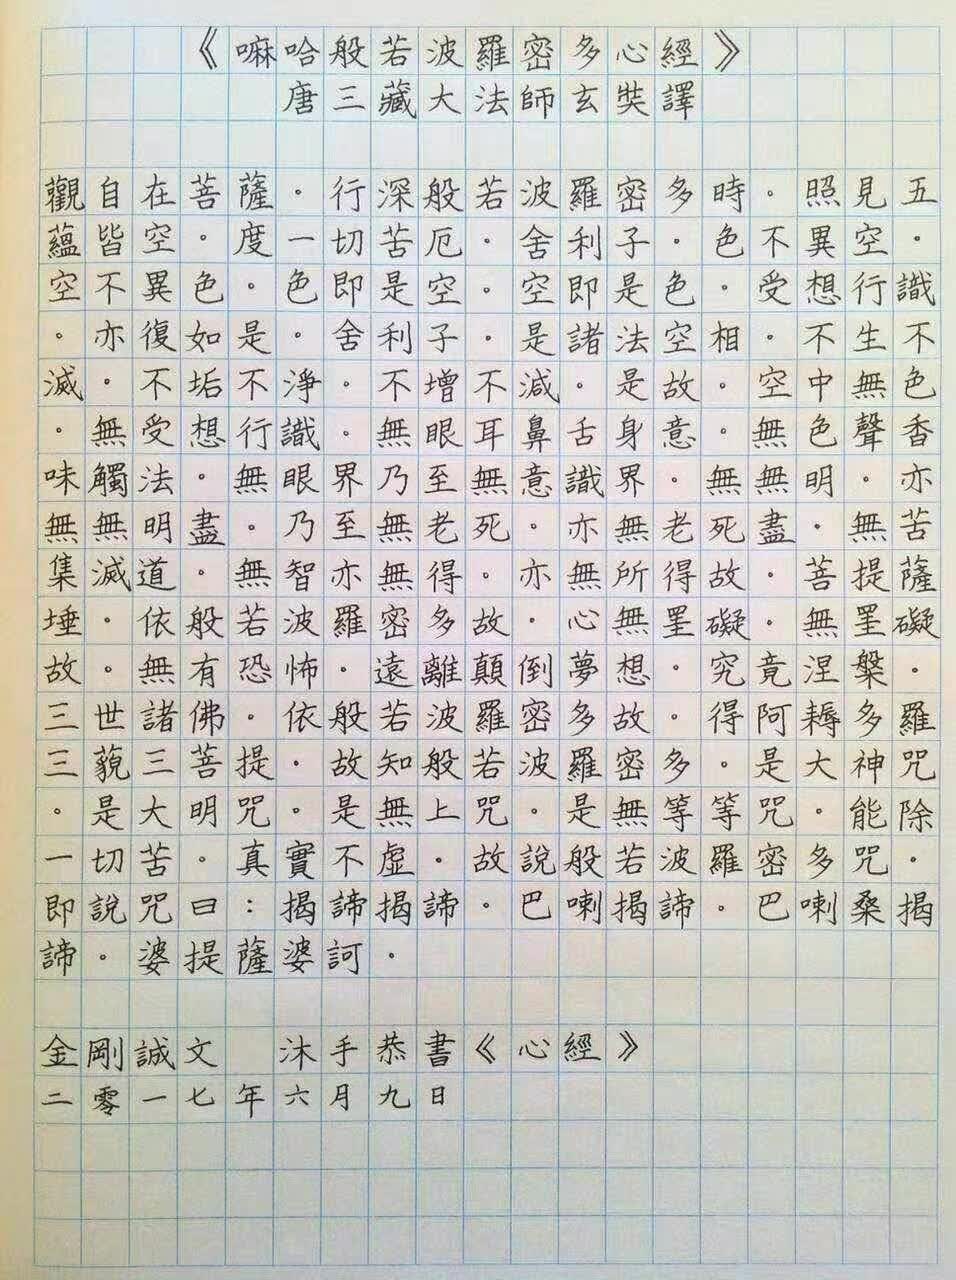 《嘛哈般若波羅密多心經》
唐三藏大法師玄奘譯
觀自在菩薩。行深般若波羅密多時。照見五
蘊皆空。度一切苦厄。舍利子。色不異空。
空不異色。色即是空。空即是色。受想行識
。亦復如是。舍利子。是諸法空相。不生不
滅。不垢不淨。不增不減。是故。空中無色
。無受想行識。無眼耳鼻舌身意。無色聲香
味觸法。無眼界乃至無意識界。無無明。亦
無無明盡。乃至無老死。亦無老死盡。無苦
集滅道。無智亦無得。亦無所得故。菩提薩
埵。依般若波羅密多故。心無罣礙。無罣礙
故。無有恐怖。遠離顛倒夢想。究竟涅槃。
三世諸佛。依般若波羅密多故。得阿耨多羅
三藐三菩提。故知般若波羅密多。是大神咒
。是大明咒。是無上咒。是無等等咒。能除
一切苦。真實不虛。故說般若波羅密多咒。
即說咒曰：揭諦揭諦。巴喇揭諦。巴喇桑揭
諦。婆提薩婆訶。
金剛誠文 沐手恭書《心經》
二零一七年六月九日